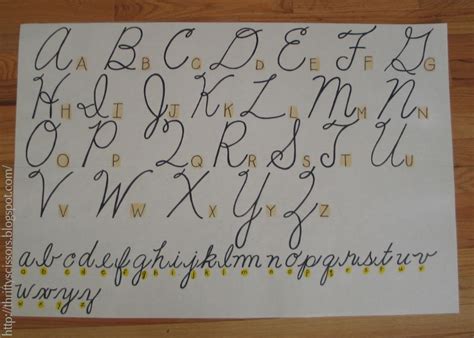 A A B B C C D D E E F F G G
H H I I J J K K L L M M N N
O O P P Q Q R R S S T T U U
V V W W X X Y Y Z Z
a b c d e f g h i j k l m n o p q r s t u v
a b c d e f g h i j k l m n o p q r s t u v
w x y z
w x y z
http://thriftyscissors.blogspot.com/